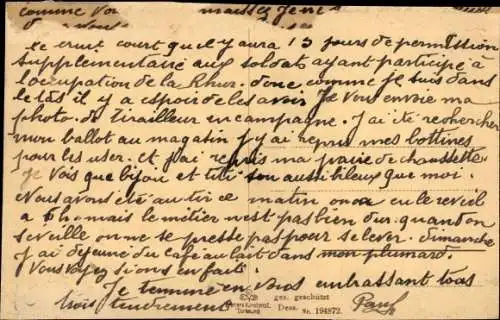 comme
le bruit court qu'il y aura 15 jours de permission
supplementaire aux soldats ayant participé à
l'occupation de la Rhur. donc comme je suis dans
le tas il y a espoir de les avoir Je vous envoie ma
photo de tirailleur en campagne. J'ai été rechercher
mon ballot au magasin j'y ai repris mes bottines
pour les user. et j'ai repris ma paire de chaussettes
Je vois que bijou et titi son aussi bileux que moi.
Nous avons été au tir ce matin on a eu le reveil
a mais le métier n'est pas bien dur. quand on
s'éveille on ne se presse pas pour se lever. dimanche
j'ai dejeuné du café au lait dans mon plumard.
Vous voyez si on s en fait.
Je termine en vous embrassant tous
trois tendrement Paul
ges. geschützt
Dess. Nr. 194872.